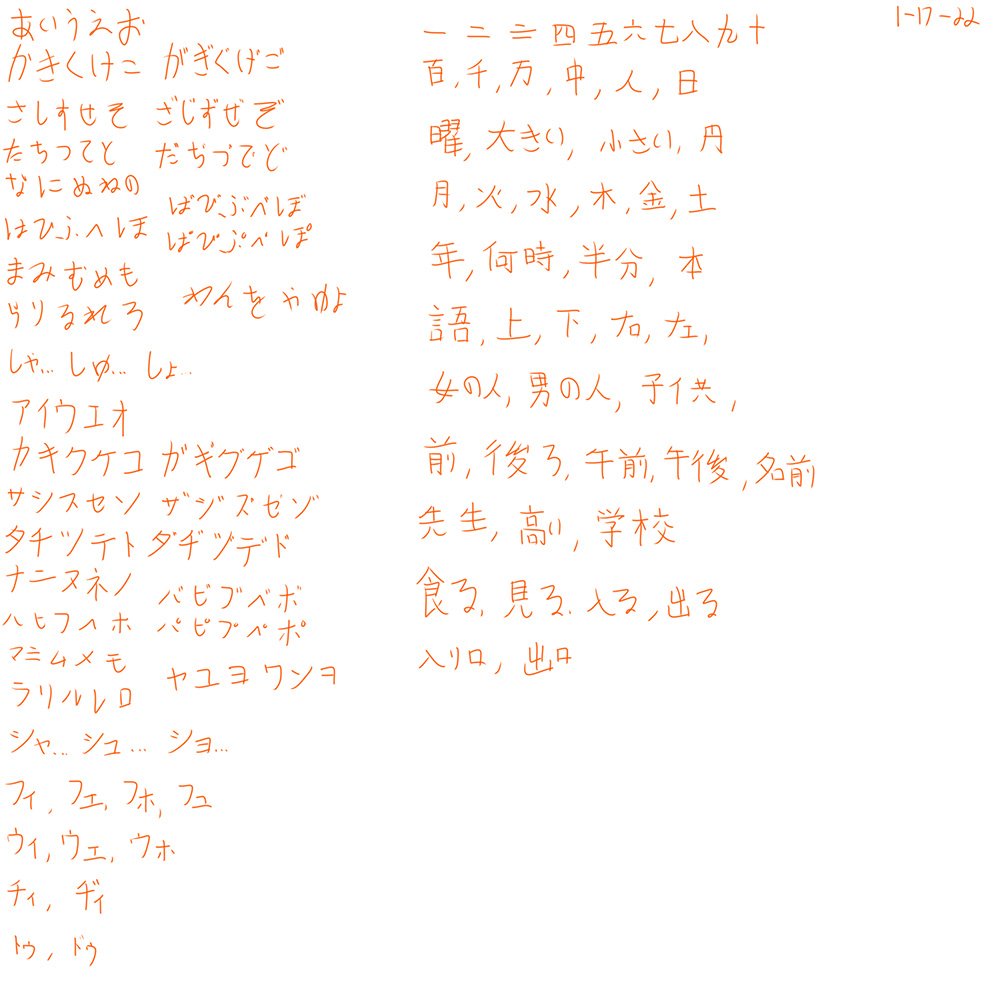 あいうえお
かきくけこ がぎぐげご
さしすせそ ざじずぜぞ
たちつてと だぢづでど
なにぬねの
はひふへほ ばびぶべぼ
ぱぴぷぺぽ
まみむめも
らりるれろ わんをやゆよ
しゃ… しゅ… しょ…
アイウエオ
カキクケコ ガギグゲゴ
サシスセソ ザジズゼゾ
タチツテト ダヂヅデド
ナニヌネノ
ハヒフヘホ バビブベボ
パピプペポ
マミムメモ
ラリルレロ ヤユヨワンヲ
シャ… シュ… ショ…
フィ, フェ, フォ, フュ
ウィ, ウェ, ウォ
ティ, ディ
トゥ, ドゥ
1-17-22
一二三四五六七八九十
百, 千, 万, 中, 人, 日
曜, 大きい, 小さい, 円
月, 火, 水, 木, 金, 土
年, 何時, 半分, 本
語, 上, 下, 右, 左,
女の人, 男の人, 子供,
前, 後ろ, 午前, 午後, 名前
先生, 高い, 学校
食る, 見る, 入る, 出る
入り口, 出口